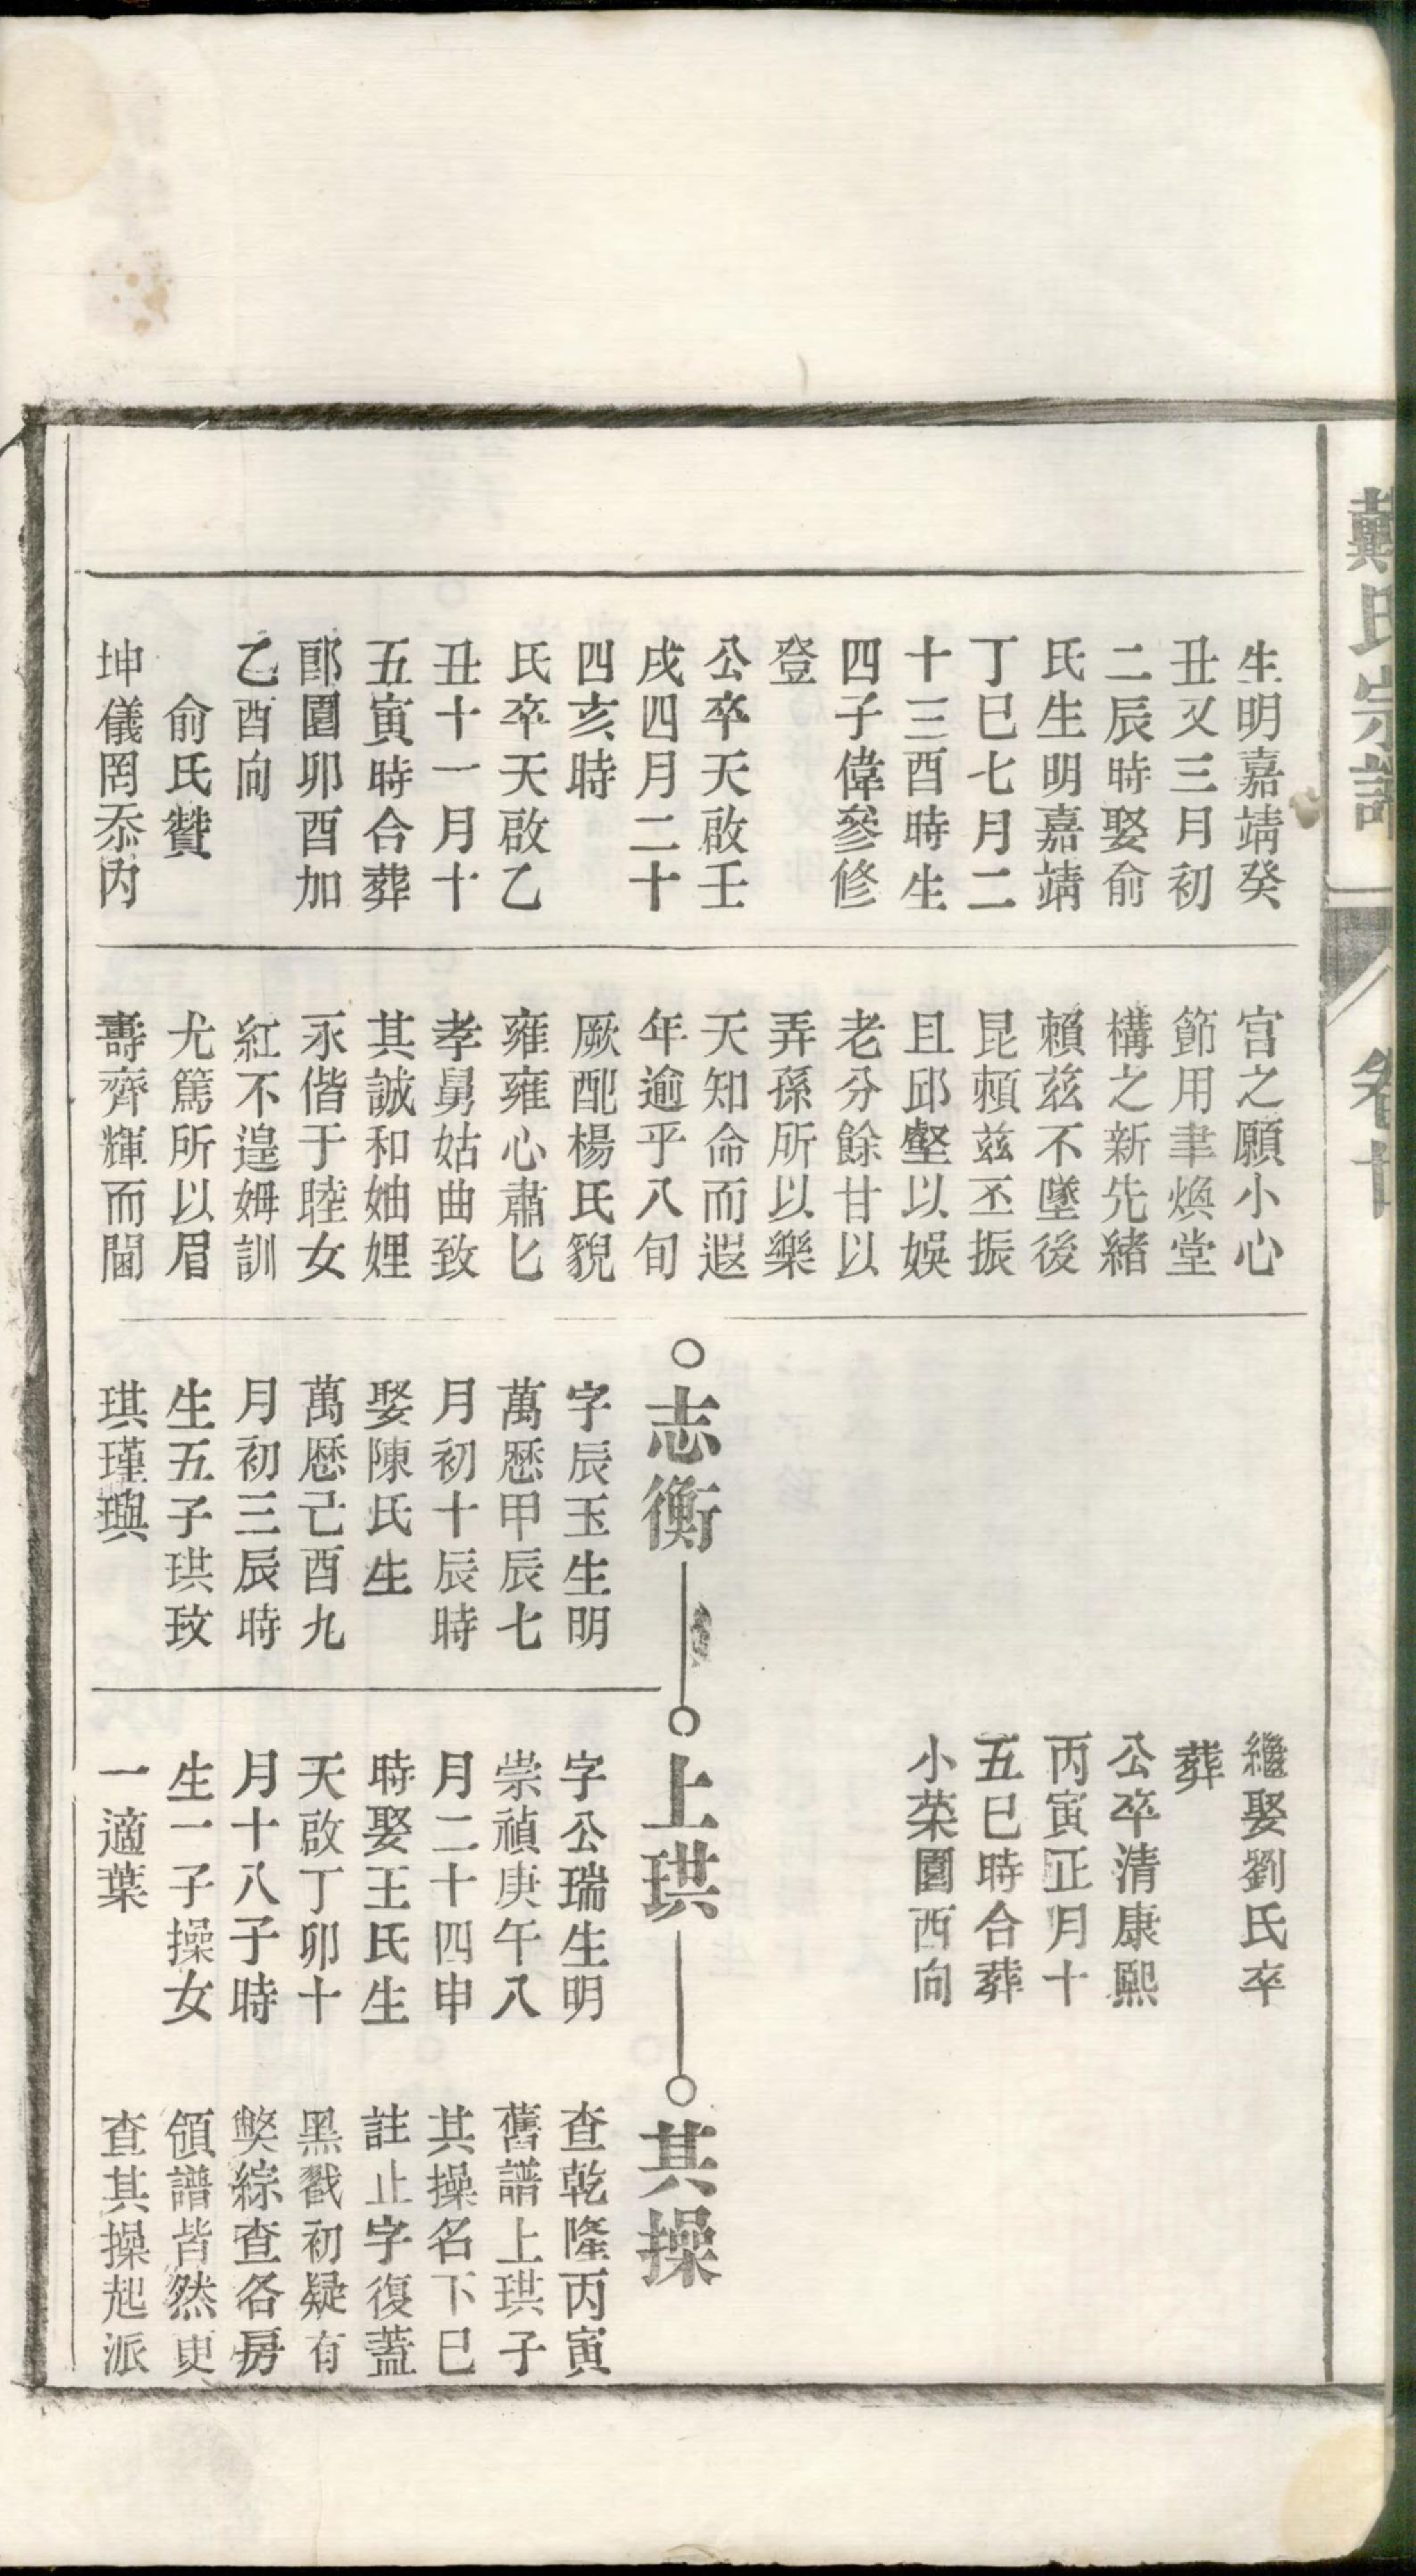 戴氏宗譜
卷
生明嘉靖癸
丑又三月初
二辰時娶俞
氏生明嘉靖
丁巳七月二
十三酉時生
四子偉參修
登
公卒天啟壬
戌四月二十
四亥時
氏卒天啟乙
丑十一月十
五寅時合葬
郎園卯酉加
乙酉向
俞氏贊
坤儀罔忝內
宫之願小心
節用聿煥堂
構之新先緒
賴兹不墜後
昆賴兹丕振
且邱壑以娛
老分餘甘以
弄孫所以樂
天知命而遐
年逾乎八旬
厥配楊氏貌
雍雍心肅匕
孝舅姑曲致
其誠和妯娌
永偕于睦女
紅不遑姆訓
尤篤所以眉
壽齊輝而閫
志衡
字辰玉生明
萬歷甲辰七
月初十辰時
娶陳氏生
萬歷己酉九
月初三辰時
生五子珙玫
琪瑾璵
繼娶劉氏卒
葬
公卒清康熙
丙寅正月十
五巳時合葬
小菜園西向
上珙
字公瑞生明
崇禎庚午八
月二十四申
時娶王氏生
天啟丁卯十
月十八子時
生一子操女
一適葉
其操
查乾隆丙寅
舊譜上珙子
其操名下巳
註止字復蓋
黑戳初疑有
獘綜查各房
領譜皆然更
查其操起派